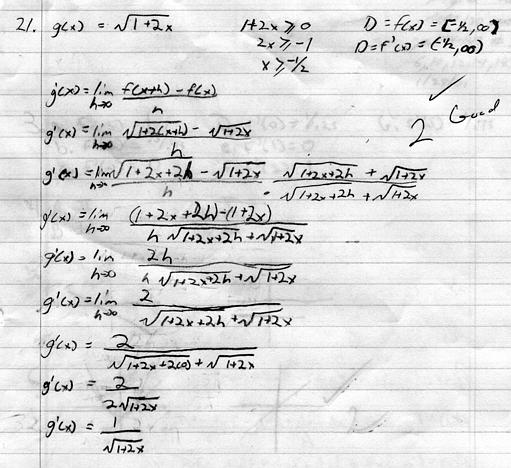 21. g(x) = √1+2x    1+2x ≥ 0    D = f(x) = [-1/2, ∞)
2x ≥ -1    D = f'(x) = (-1/2, ∞)
x ≥ -1/2
g'(x) = lim h→0 f(x+h) - f(x) / h
✓ Good
2
g'(x) = lim h→0 √1+2(x+h) - √1+2x / h
g'(x) = lim h→0 √1+2x+2h - √1+2x / h · √1+2x+2h + √1+2x / √1+2x+2h + √1+2x
g'(x) = lim h→0 (1+2x+2h)-(1+2x) / h √1+2x+2h + √1+2x
g'(x) = lim h→0 2h / h √1+2x+2h + √1+2x
g'(x) = lim h→0 2 / √1+2x+2h + √1+2x
g'(x) = 2 / √1+2x+2(0) + √1+2x
g'(x) = 2 / 2√1+2x
g'(x) = 1 / √1+2x